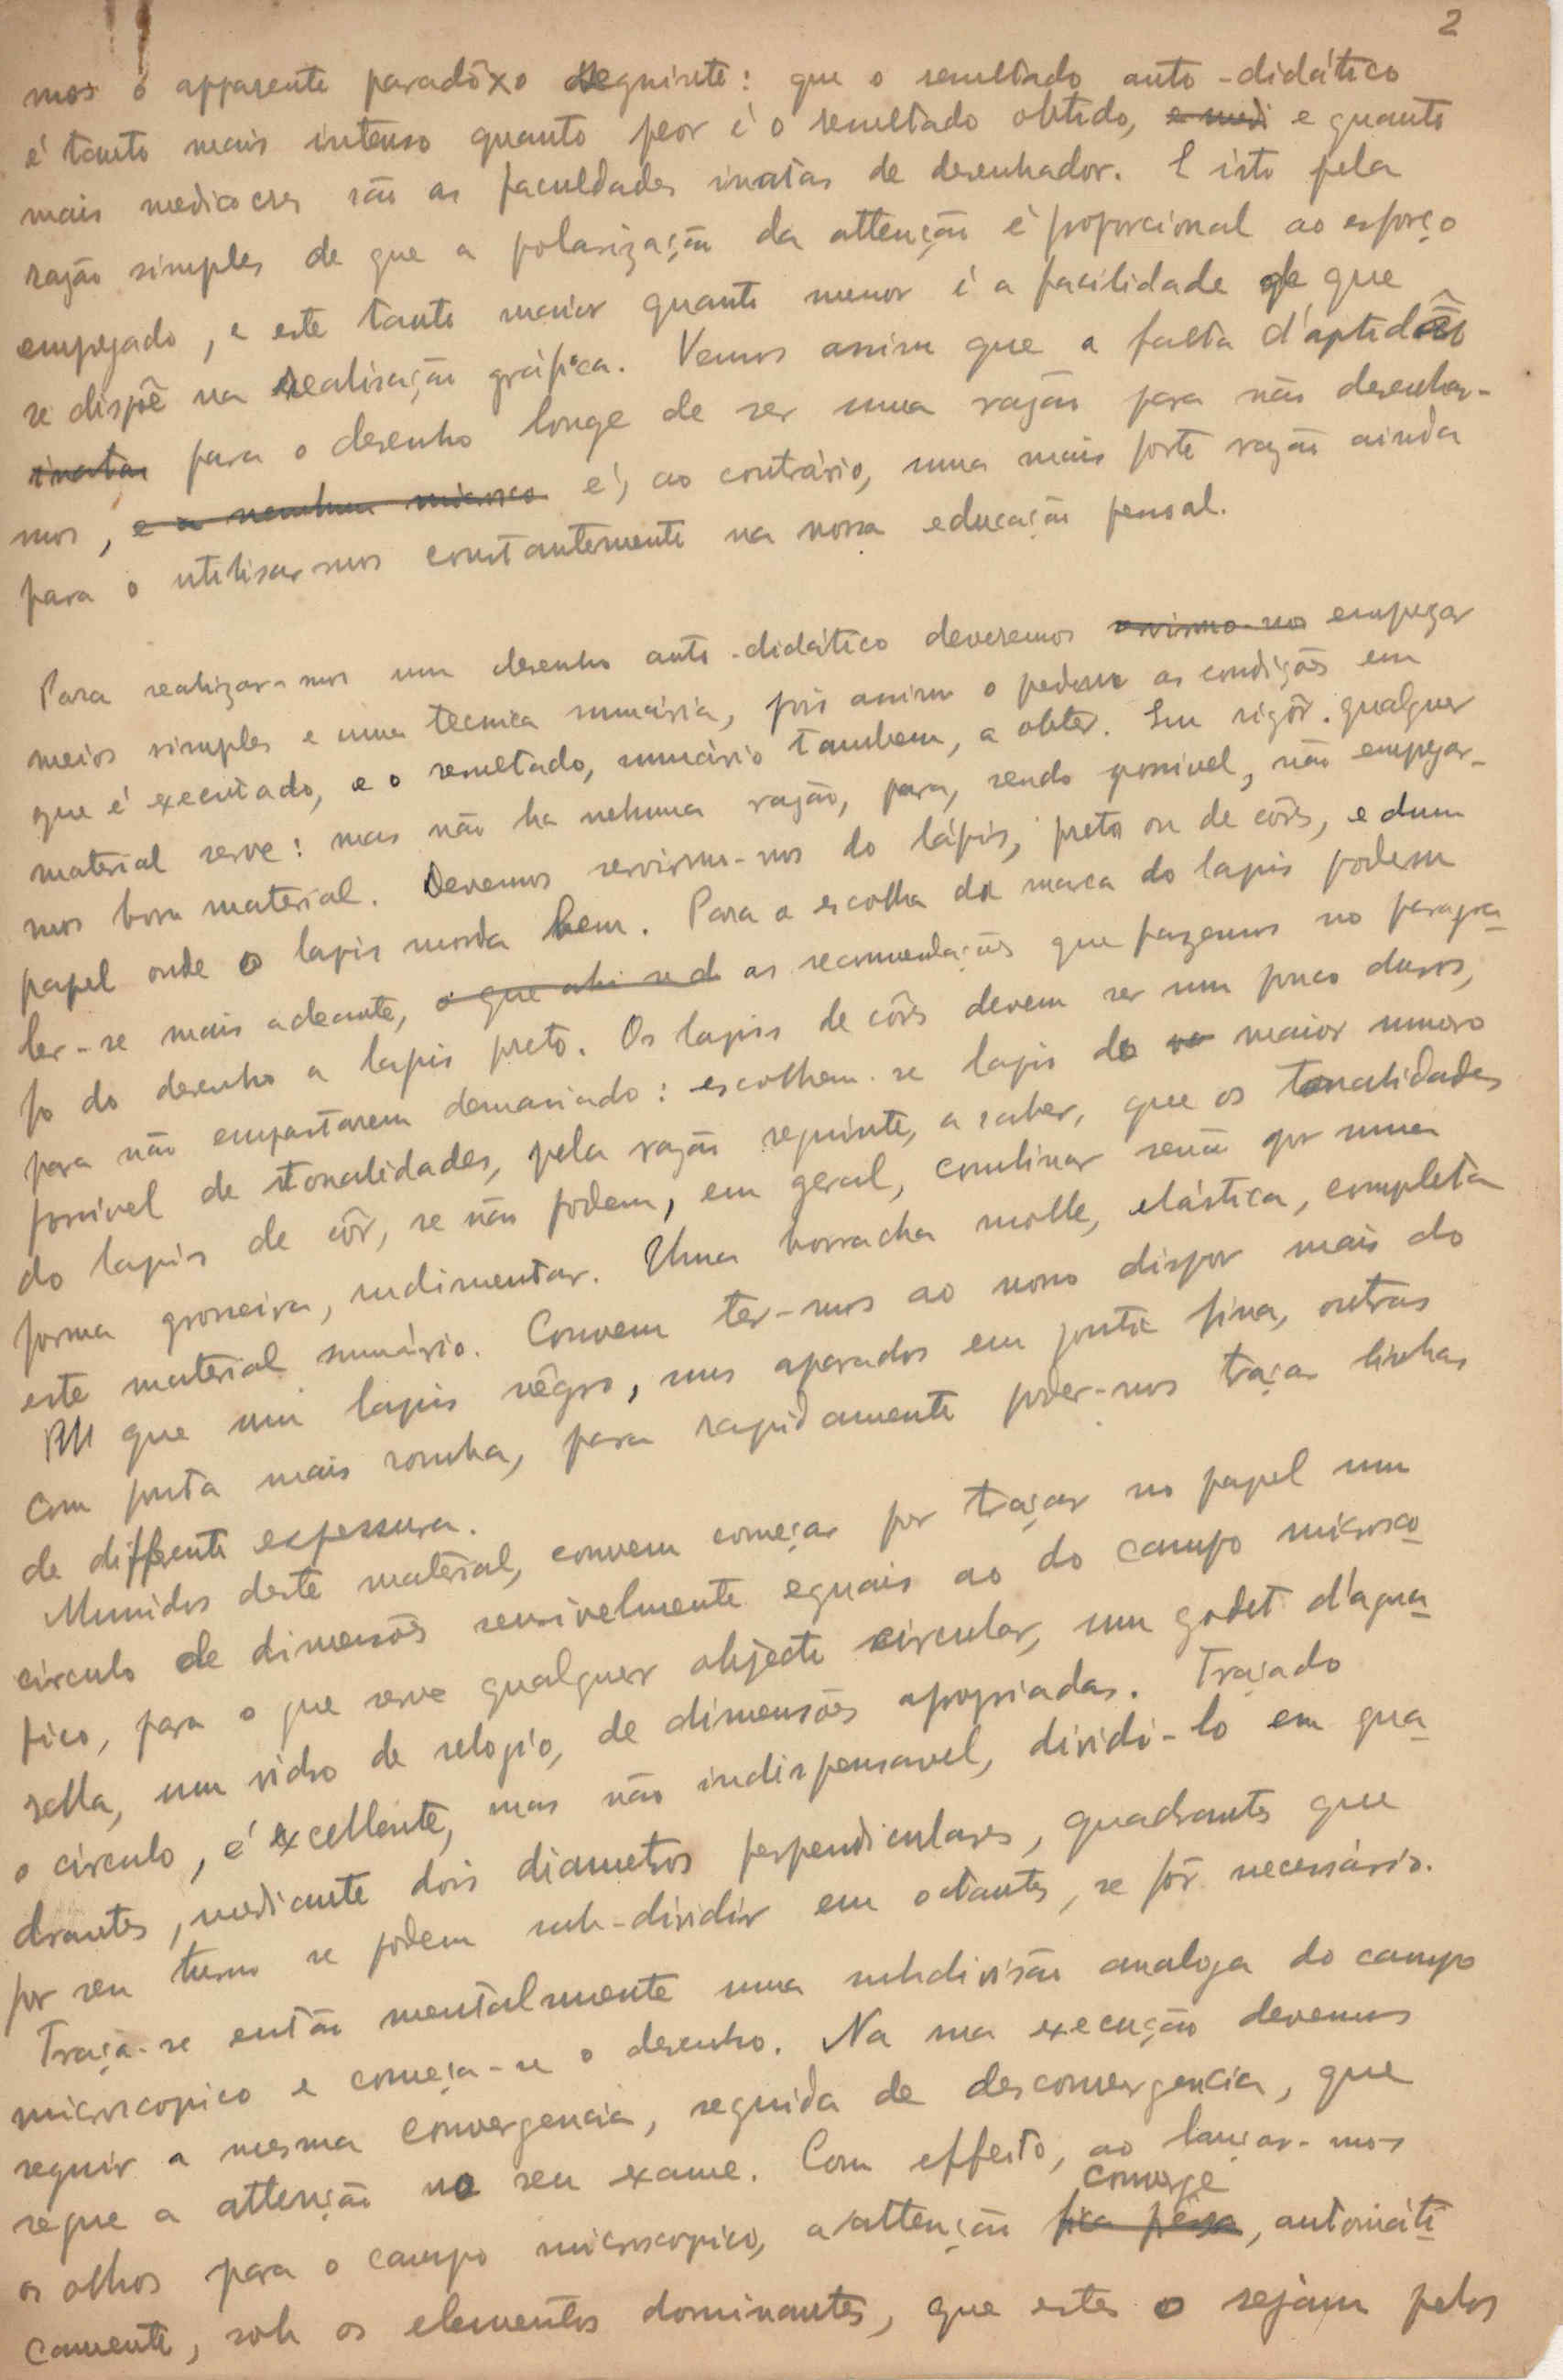 2
mos o apparente paradôxo seguinte: que o resultado auto-didático
é tanto mais intenso quanto peor é o resultado obtido, e medi e quanto
mais mediocres são as faculdades inatas de desenhador. E isto pela
razão simples de que a polarização da attenção é proporcional ao esforço
empregado, e este tanto maior quanto menor é a facilidade de que
se dispõe na realisação gráfica. Vemos assim que a falta d'aptidão
inatas para o desenho longe de ser uma razão para não desenhar-
mos, e a nenhum é, ao contrário, uma mais forte razão ainda
para o utilisarmos constantemente na nossa educação pessoal.
Para realizar-mos um desenho auto-didático deveremos empregar
meios simples e uma tecnica sumária, pois assim o pedem as condições em
que é executado, e o resultado, sumário tambem, a obter. Em rigôr qualquer
material serve: mas não ha nehuma razão, para, sendo possivel, não empregar-
mos bom material. Devemos servirmo-nos do lápis, preto ou de côres, e dum
papel onde o lapis morda bem. Para a escolha da marca do lapis podem
ler-se mais adeante, o que as recomendações que fazemos no paragra-
fo do desenho a lapis preto. Os lapis de côres devem ser um pouco duros,
para não empastarem demasiado: escolhem-se lapis do maior numero
possivel de tonalidades, pela razão seguinte, a saber, que os tonalidades
do lapis de côr, se não podem, em geral, combinar senão por uma
forma grosseira, rudimentar. Uma borracha molle, elástica, completa
este material sumário. Convem ter-mos ao nosso dispor mais do
que um lapis nêgro, uns aparados em ponta fina, outros
com ponta mais romba, para rapidamente poder-mos traçar linhas
de differente espessura.
Munidos deste material, convem começar por traçar no papel um
circulo de dimensões sensivelmente eguais ao do campo microsco-
pico, para o que serve qualquer objecto circular, um godet d'agua-
rella, um vidro de relogio, de dimensões apropriadas. Traçado
o circulo, é excellente, mas não indispensavel, dividi-lo em qua-
drantes, mediante dois diametros perpendiculares, quadrantes que
por seu turno se podem sub-dividir em octantes, se fôr necessário.
Traça-se então mentalmente uma subdivisão analoga do campo
microscopico e começa-se o desenho. Na sua execução devemos
seguir a mesma convergencia, seguida de desconvergencia, que
segue a attenção no seu exame. Com effeito, ao lançar-mos
os olhos para o campo microscopico, a attenção fica prêsa converge, automáti-
camente, sob os elementos dominantes, que estes o sejam pelos